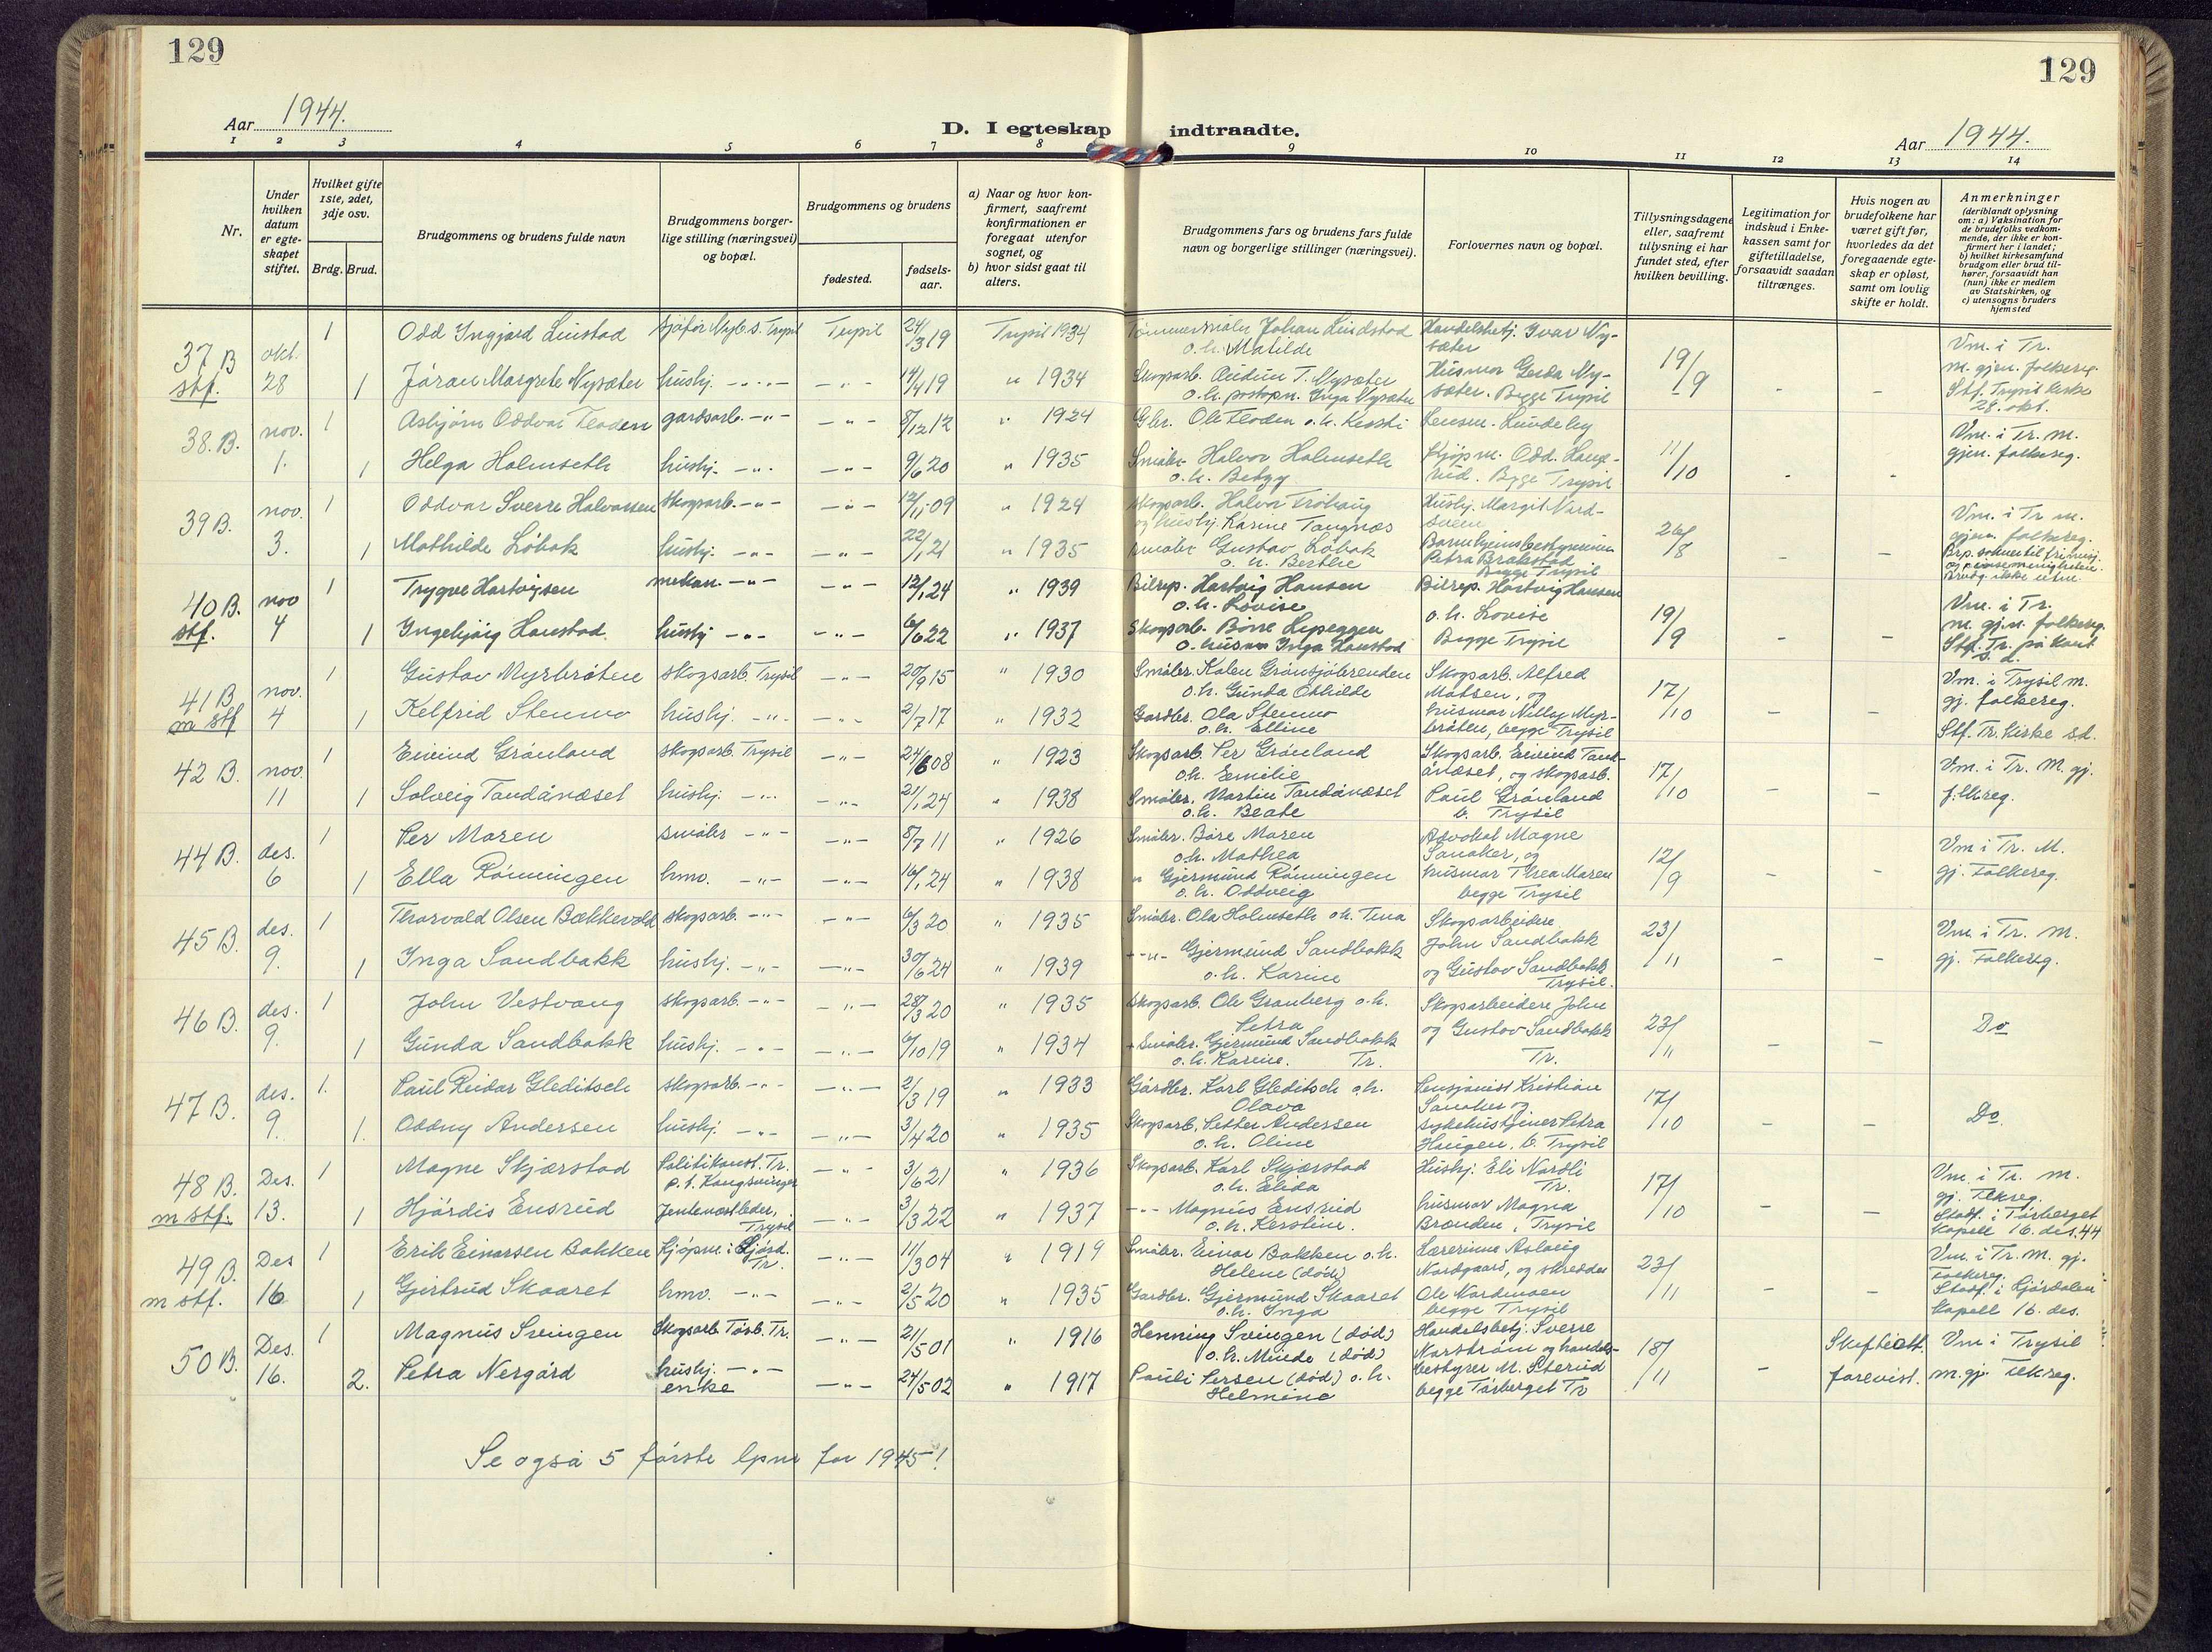 129
129
Aar 1944.
D. I egteskap indtraadte.
Aar 1944.
1 2 3 4 5 6 7 8 9 10 11 12 13 14
Nr.
Under hvilken datum er egteskapet stiftet.
Hvilket gifte 1ste, 2det, 3dje osv.
Brdg. Brud.
Brudgommens og brudens fulde navn
Brudgommens borgerlige stilling (næringsvei) og bopæl.
Brudgommens og brudens
fødested.
fødselsaar.
a) Naar og hvor konfirmert, saafremt konfirmationen er foregaat utenfor sognet, og
b) hvor sidst gaat til alters.
Brudgommens fars og brudens fars fulde navn og borgerlige stillinger (næringsvei).
Forlovernes navn og bopæl.
Tillysningsdagene eller, saafremt tillysning ei har fundet sted, efter hvilken bevilling.
Legitimation for indskud i Enkekassen samt for giftetilladelse, forsaavidt saadan tiltrænges.
Hvis nogen av brudefolkene har været gift før, hvorledes da det foregaaende egteskap er opløst, samt om lovlig skifte er holdt.
Anmerkninger
(deriblandt oplysning om: a) Vaksination for de brudefolks vedkommende, der ikke er konfirmert her i landet; b) hvilket kirkesamfund brudgom eller brud tilhører, forsaavidt han (nun) ikke er medlem av Statskirken, og c) utensogns bruders hjemsted
37 B stf. okt. 28 1 Odd Ingjard Leiistad sjåfør Nyb.s. Trysil Trysil 24/3 19 Trysil 1934 Tømmermåler Johan o.h. Matilde Handelsbetj. Ivar Nysæter 19/9 Vm. i Tr. m. gjen. folkereg.
1 Jöran Margrete Nysæter hushj. -"- -"- 14/4 19 " 1934 Skogsarb. Audun T. Nysæter o.h. postopn. Inga Nysæter Husmor Gerda Nysæter. Begge Trysil - - Stf. Trysil kirke 28. okt.
38. B. nov. 1. 1 Asbjørn Oddvar Floden gardsarb. -"- -"- 8/12 12 " 1924 Gbr. Ole Floden o.h. Kersti Lensm. Lundeby 11/10 Vm. i Tr. m. gjen. folkereg.
1 Helga Holmseth hushj. -"- -"- 9/6 20 " 1935 Småbr. Halvor Holmseth o.h. Betzy Kjøpm. Odd. Begge Trysil - -
39 B. nov. 3. 1 Oddvar Sverre Halvorsen skogsarb. -"- -"- 12/11 09 " 1924 skogsarb. Halvor Frøhaug og hushj. Karine Tangnæs Hushj. Margit Nordsveen 26/8 Vm. i Tr m. gjen. folkereg.
1 Mathilde Løbak hushj. -"- -"- 22/1 21 " 1935 småbr Gustav Løbak o.h. Berthe Barnehjemsbestyrerinne Petra Brakstad Begge Trysil - -
40 B. stf. nov 4 1 Trygve Hartvigsen mekan. -"- -"- 12/1 24 " 1939 Bilrep. Hartvig Hansen o.h. Lovise Bilrep. Hartvig Hansen o.h. Lovise 19/9 Vm. i Tr. m. gjen. folkereg.
1 Ingebjørg Haustad. hushj -"- -"- 6/6 22 " 1937 Skogsarb. Børre Lepeggen o. husm Inga Haustad Begge Trysil - - Stf. Tr. på kont s.d.
41 B m stf nov. 4 1 Gustav Myrbråten skogsarb. Trysil -"- 20/9 15 " 1930 Småbr. Kalen Grønsjøberenden o.h. Gunda Othilde Skogsarb. Alfred Matsen, og 17/10 Vm. i Trysil m. gj. folkereg.
1 Kelfrid Stenmo hushj. -"- -"- 2/7 17 " 1932 Gardbr. Ola Stenmo o.h. Elline husmor Nilly Myrbråten, begge Trysil - - Stf. Tr. kirke s.d.
42 B. nov. 11 1 Eivind Grønland skogsarb. Trysil -"- 24/6 08 " 1923 Skogsarb. Per Grønland o.h. Emilie Skogsarb. Eivind Tandånæset, og skogsarb. 17/10 Vm. i Tr. M. gj. f.lkreg.
1 Solveig Tandånæset hushj. -"- -"- 21/1 24 " 1938 Småbr. Martin Tandånæset o.h. Beate Paul Grønland b. Trysil - -
44 B. des. 6 1 Per Moren småbr -"- -"- 8/7 11 " 1926 Småbr. Båre Moren o.h. Mathea Advokat Magne Sanaker, og 12/9 Vm i Tr. M. gj. Folkereg.
1 Ella Rønningen hmv. -"- -"- 16/1 24 " 1938 " Gjermund Rønningen o.h. Oddveig husmor Thea Moren begge Trysil - -
45 B. des. 9. 1 Thorvald Olsen Bækkevold skogsarb. -"- -"- 6/3 20 " 1935 Småbr. Ola Holmseth o.h. Tina Skogsarbeidere John Sandbakk 23/11 Vm. i Tr. M. gj. Folkereg.
1 Inga Sandbakk hushj. -"- -"- 30/6 24 " 1939 -"- Gjermund Sandbakk o.h. Karine og Gustav Sandbakk Trysil. - -
46 B. des. 9. 1 John Vestvang skogsarb. -"- -"- 28/3 20 " 1935 Skogsarb. Ole Granberg o.h. Petra Skogsarbeidere John og Gustav Sandbakk Tr. 23/11 Do
1 Gunda Sandbakk hushj. -"- -"- 6/10 19 " 1934 + Småbr. Gjermund Sandbakk o.h. Karine. Tr. - -
47 B. des. 9. 1. Paul Reidar Gleditsch skogsarb. -"- -"- 2/3 19 " 1933 Gårdbr. Karl Gleditsch o.h. Olava Pensjonist Kristian Sanaker og 17/10 Do
1. Oddny Andersen hushj. -"- -"- 3/4 20 " 1935 Skogsarb. Petter Andersen o.h. Oline sykehustjener Petra Haugen, b. Trysil - -
48 B. m stf. Des. 13. 1 Magne Skjærstad Politikonst. Tr. p.t. Kongsvinger -"- 3/6 21 " 1936 Skogsarb. Karl Skjærstad o.h. Elida Hushj. Eli Nordli Tr. 17/10 Vm. i Tr. m. gj. Flkreg.
1 Hjørdis Ensrud Jentenestleder, Trysil 3/3 22 " 1937 -"- Magnus Ensrud o.h. Kerstine. husmor Magna Brænden, Trysil - - Stadf. i Tørberget kapell 16. des. 44
49 B. m stf. Des 16 1 Erik Einarsen Bakken kjøpm. i Ljørd. Tr. -"- 11/3 04 " 1919 Småbr. Einar Bakken o.h. Helene (død) Lærerinne Aslaug Nordgaard, og skredder 23/11 Vm. i Tr. M. gj. Folkereg.
1 Gjertrud Skaaret hmv. -"- -"- 2/5 20 " 1935 Gardbr. Gjermund Skaaret o.h. Inga Ole Nordmoen begge Trysil - - Stadf. i Ljørdalen kapell 16. des.
50 B. Des. 16. 1 Magnus Svingen Skogsarb. Tørb. Tr. -"- 21/5 01 " 1916 Henning Svingen (død) o.h. Minde (død) Handelsbetj. Sverre Norstrøm og handels- 18/11 Skifteatt. Vm i Trysil
2. Petra Nergård hushj. -"- enke -"- 24/5 02 " 1917 Pauli Persen (død) o.h. Helmine bestyrer M. Sterud begge Tørberget Tr - forevist. m. gj. Flkreg.
Se også 5 første lpnr for 1945!